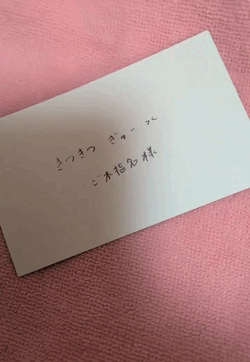 きつきつ ぎゅーって
ご本指名様